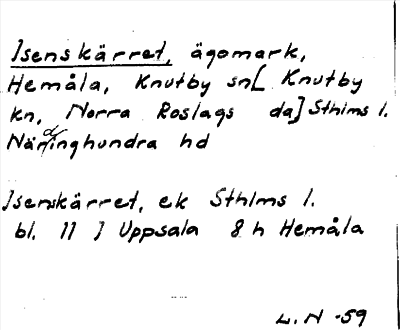 Isenskärret, ägomark,
Hemåla, Knutby sn[ Knutby
kn, Norra Roslags da] Sthlms l.
Närdinghundra hd
Isenskärret, ek Sthlms l.
bl. 11 ] Uppsala 8 h Hemåla
L.N -59